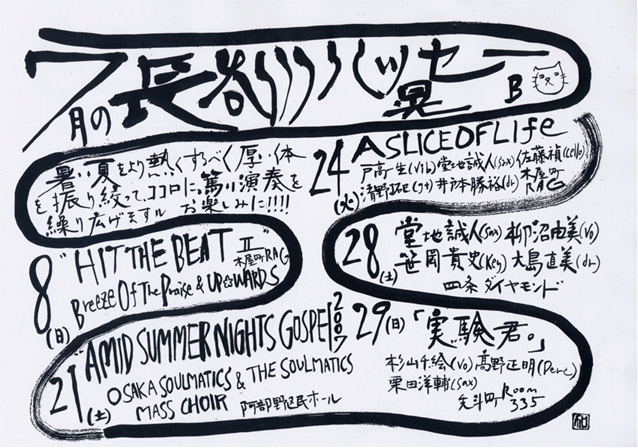 7月の長谷川晃ハッセー
B
暑い夏をより熱くするべく厚い体
を振り絞って、ココロに、篤い演奏を
繰り広げますル お楽しみに!!!!
8(日) "HIT THE BEAT II" 木屋町RAG
Breeze Of The Praise & UP☆WARDS
21(土) "AMID SUMMER NIGHTS GOSPEL 2007"
OSAKA SOULMATICS & THE SOULMATICS
MASS CHOIR 阿部野区民ホール
24(火) A SLICE OF Life
戸高生(Vib)堂地誠人(Sax)佐藤禎(Cello)
清野拓巳(Gt)井戸本勝裕(dr) 木屋町RAG
28(土) 堂地誠人(Sax)柳沼由美(Vo)
笹岡貴史(Key)大島直美(dr)
四条ダイヤモンド
29(日)「実験君。」
杉山千絵(Vo)高野正明(Perc)
栗田洋輔(Sax)
先斗町Room
335